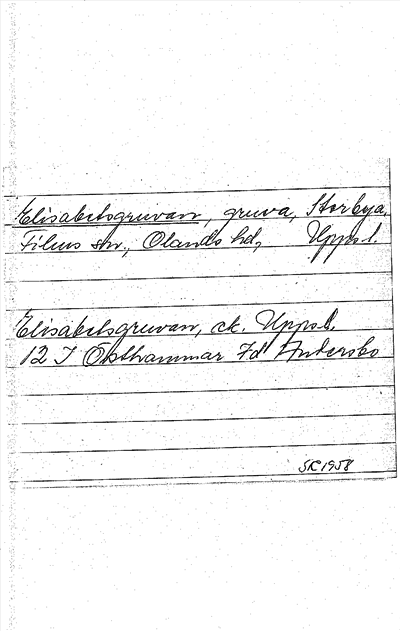 Elisabetsgruvan, gruva, Storbya,
Films sn., Olands hd, Upps.l.
Elisabetsgruvan, ek. Upps.l.
12 I Östhammar 7d Andersbo
SR 1958